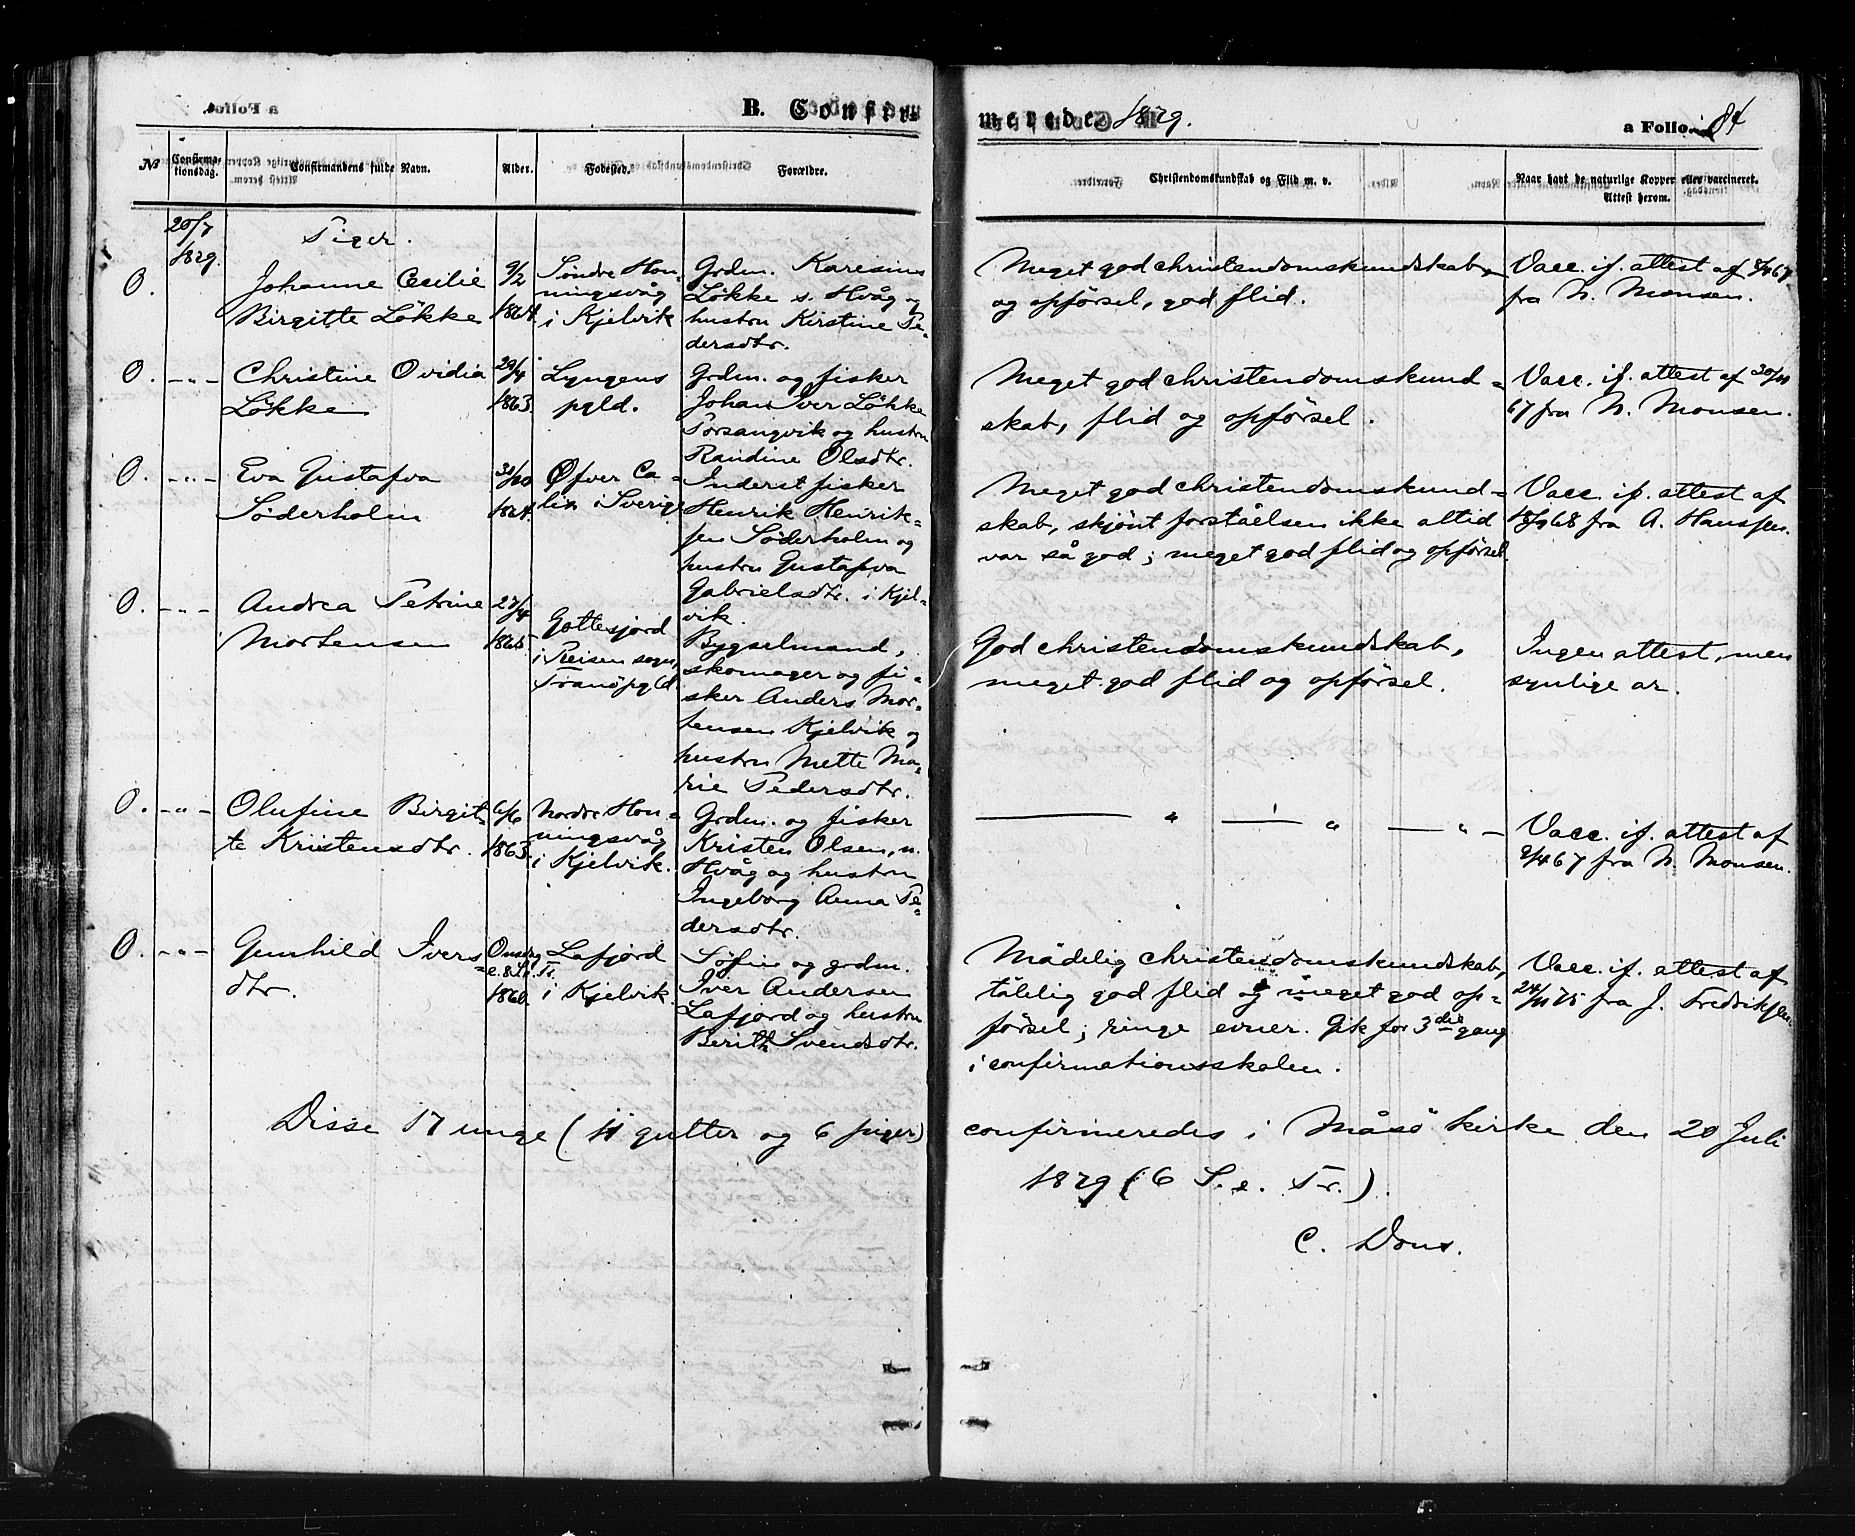 B. Confir-
merede 1879.
a Folio. 84
№
Confirma-
tionsdag.
Confirmandens fulde Navn.
Alder.
Fødested.
Forældre.
Christendomskundskab og Flid m. v.
Naar havt de naturlige Kopper eller vaccineret.
Attest herom.
20/7
1879.
Piger.
O.
Johanne Cecilie
Birgitte Løkke
9/2
1864.
Søndre Hon-
ningsvåg
i Kjelvik
Grdm. Karesius
Løkke s. Hvåg og
hustru Kirstine Pe-
dersdtr.
Meget god christendomskundskab,
og opførsel, god flid.
Vacc. if. attest af 8/4 67
fra N. Monsen.
O. -"-
Christine Ovidia
Løkke
29/4
1863.
Lyngens
pgld.
Grdm. og fisker
Johan Iver Løkke
Porsangvik og hustru
Randine Olsdtr.
Meget god christendomskund=
skab, flid og opførsel.
Vacc. if. attest af 30/11
67 fra N. Monsen.
O. -"-
Eva Gustafva
Søderholm
30/10
1864.
Øfver Ca-
lix i Sverig
Inderst fisker
Henrik Henrik-
sen Søderholm og
hustru Gustafva
Gabrielsdtr. i Kjel-
vik.
Meget god christendomskund=
skab, skjønt forståelsen ikke altid
var så god; meget god flid og opførsel.
Vacc. if. attest af
18/9 68 fra A. Hanssen.
O. -"-
Andrea Petrine
Mortensen
27/4
1865
Gottesjord
i Reisen sogn,
Tranø pgld.
Bygselmand,
skomager og fi-
sker Anders Mor-
tensen Kjelvik og
hustru Mette Ma-
rie Pedersdtr.
God christendomskundskab,
meget god flid og opførsel.
Ingen attest, men
synlige ar.
O. -"-
Olufine Birgit-
te Kristensdtr.
6/6
1863.
Nordre Hon-
ningsvåg
i Kjelvik.
Grdm. og fisker
Kristen Olsen, n.
Hvåg og hustru
Ingeborg Anna Pe-
dersdtr.
— " — " — " —
Vacc. if. attest af
8/4 67 fra N. Monsen.
O. -"-
Gunhild Ivers=
dtr.
Onsdag
e. 8 S. Tr.
1860.
Lafjord
i Kjelvik.
Søfin og grdm.
Iver Andersen
Lafjord og hustru
Berith Svendsdtr.
Mådelig christendomskundskab,
tålelig god flid og meget god op-
førsel; ringe evner. Gik for 3die gang
i confirmationsskolen.
Vacc. if. attest af
24/11 75 fra J. Fredriksen.
Disse 17 unge (11 gutter og 6 piger) confirmeredes i Måsø kirke den 20 Juli
1879 (6 S. e. Tr.).
C. Dons.